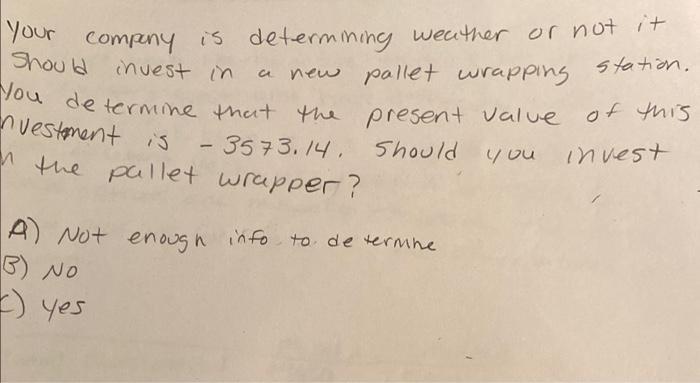 Your company is determining weather or not it
Should invest in a new pallet wrapping station.
You determine that the present value of this
nvestment is - 3573.14. Should you invest
n the pallet wrapper?
A) Not enough info to determine
B) NO
C) yes